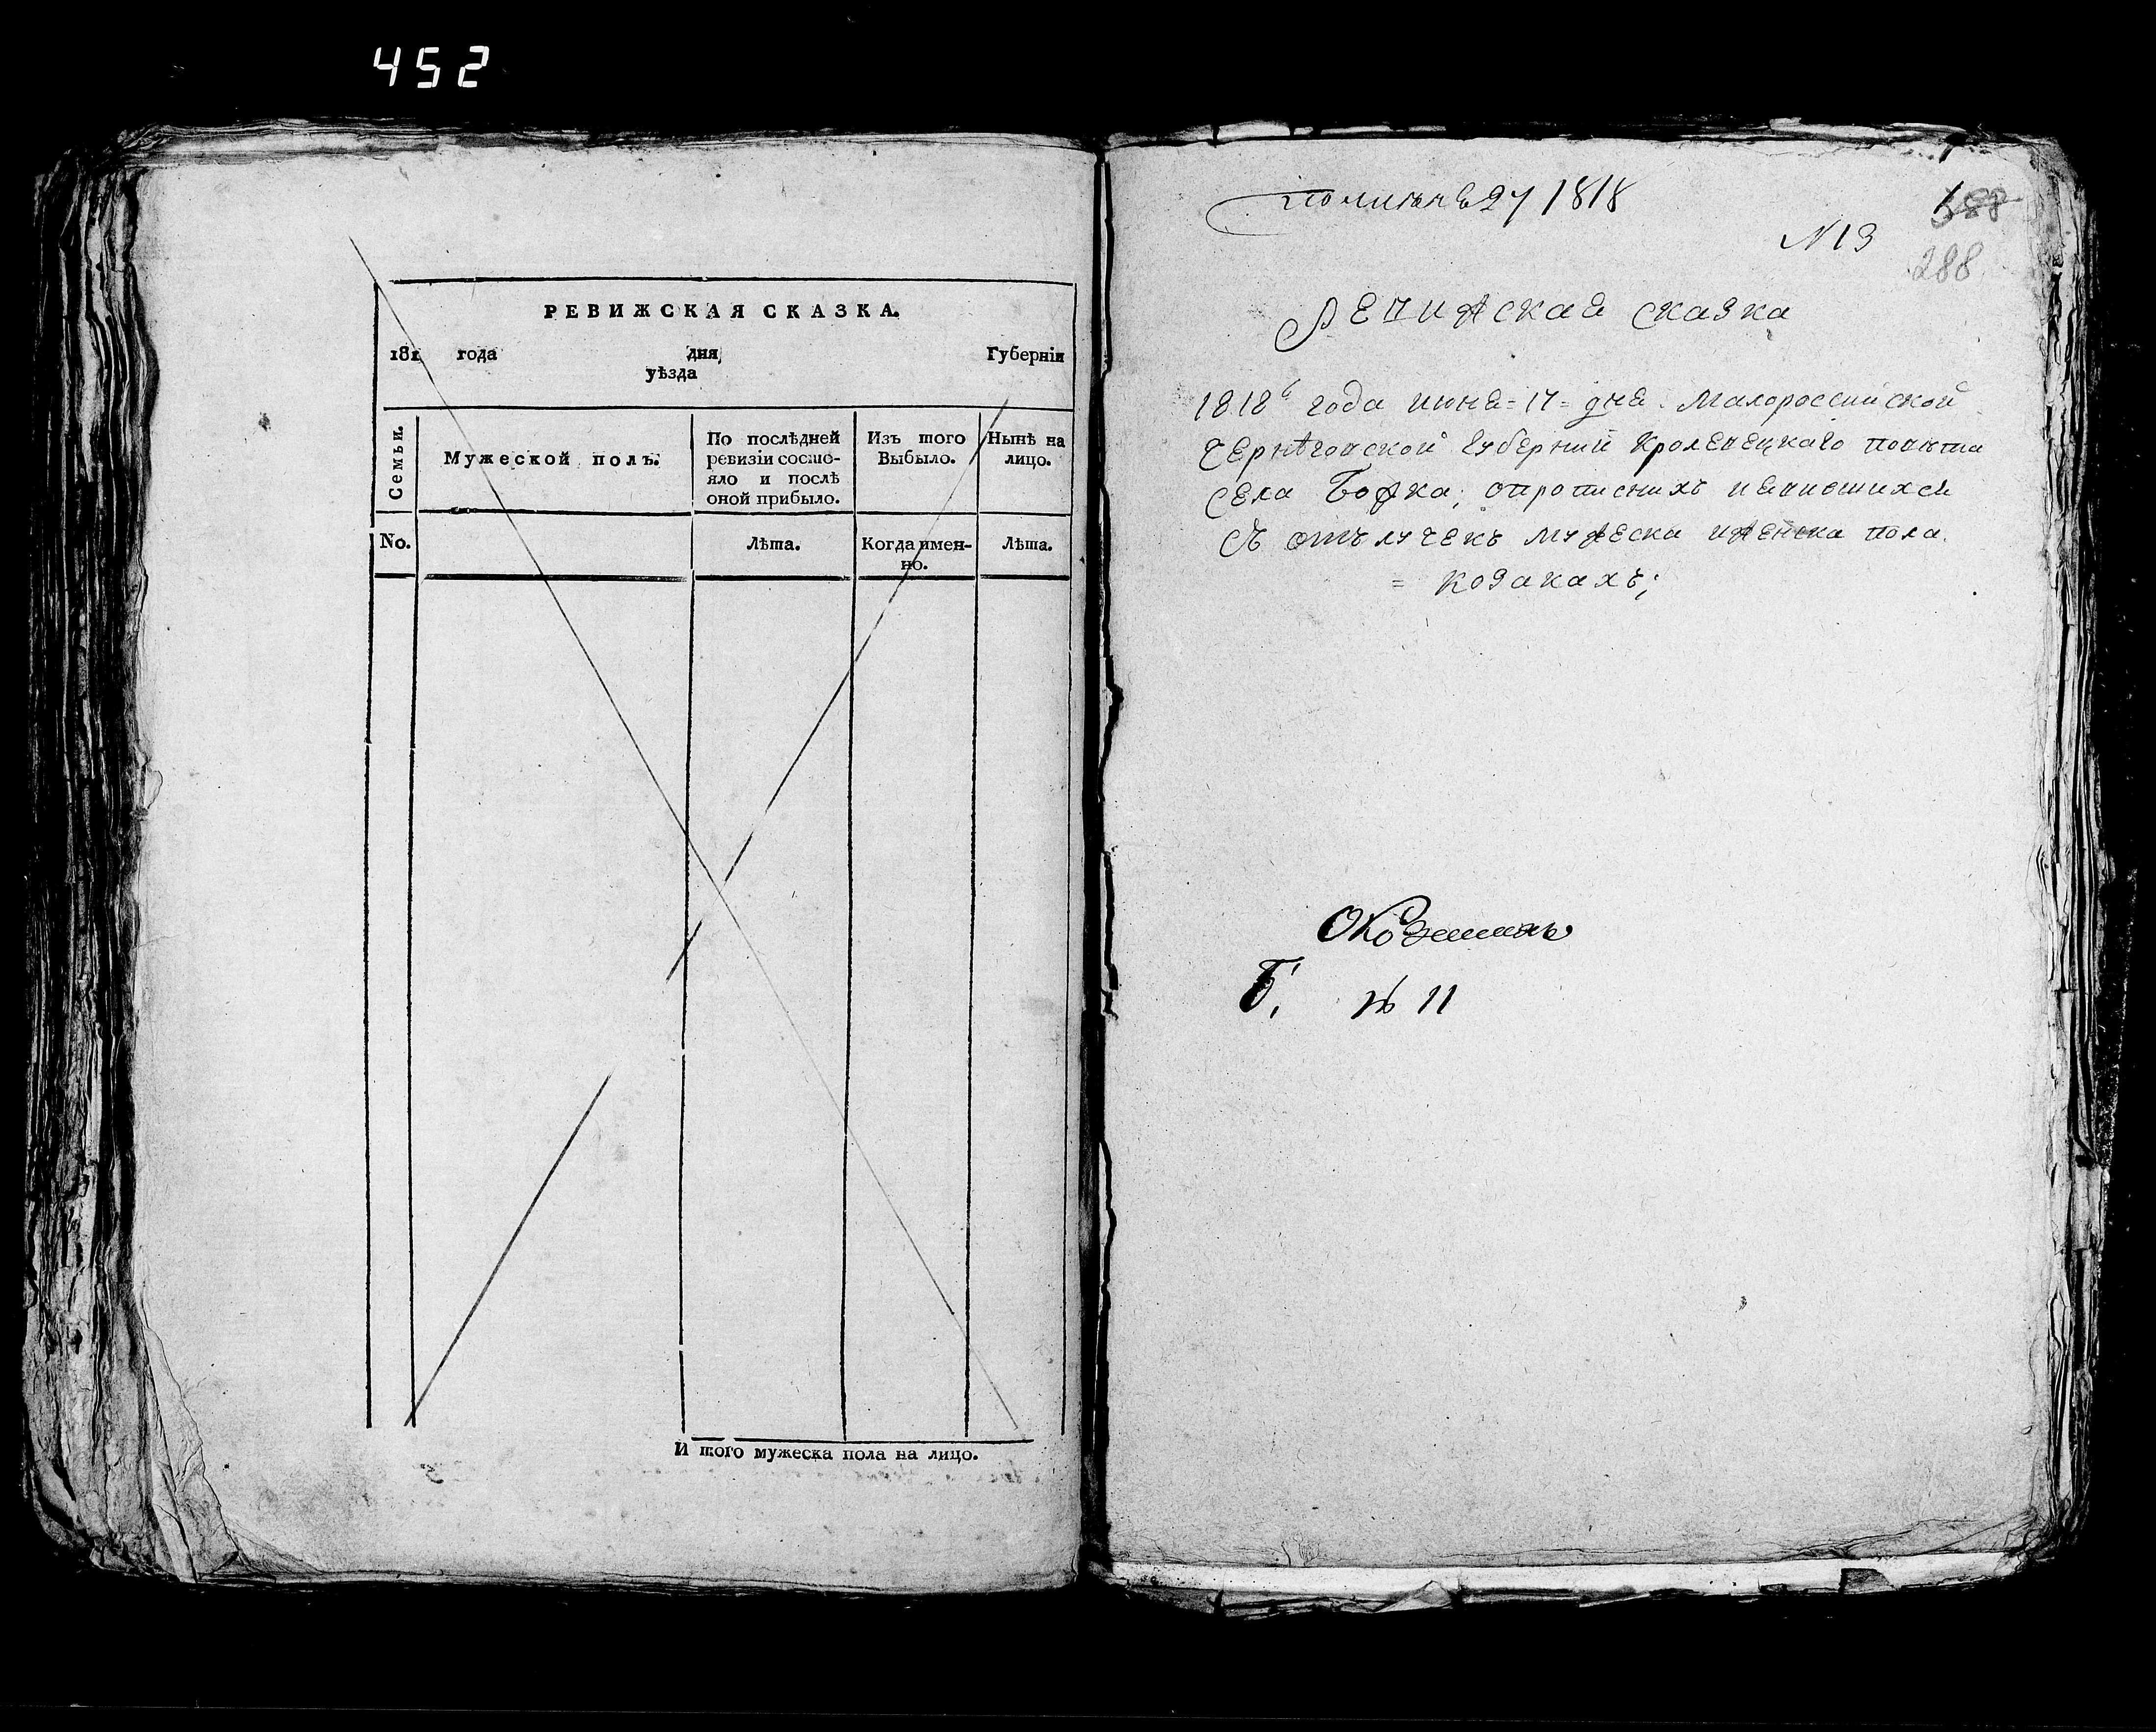 452
РЕВИЖСКАЯ СКАЗКА.
181 года дня Губерніи
уѣзда
Семьи.
Мужеской полъ.
По послѣдней ревизіи состо-
яло и послѣ оной прибыло.
Изъ того Выбыло.
Нынѣ на лицо.
No.
Лѣта.
Когда имен-
но.
Лѣта.
И того мужеска пола на лицо.
27 1818
N 13
288
288
Ревижская сказка
1818 года июня = 17 = дня Малороссийской
Чернѣговской Губернии Кролевецкаго повѣта
села Божка; опрописних иявившихся
съ отълучекъ мужеска ижЕнска пола
= козакахъ;
О Козачихъ
Б. № 11